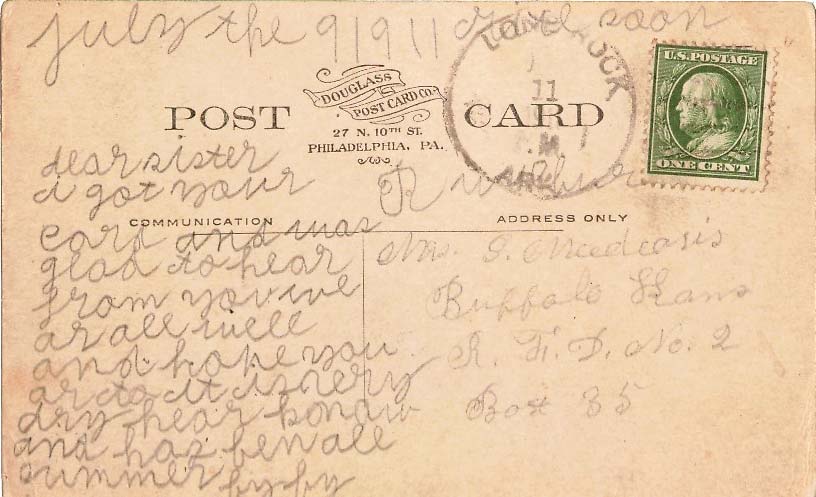 july the 9 1911 rite soon
DOUGLASS
POST CARD CO.
POST CARD
27 N. 10TH ST.
PHILADELPHIA, PA.
LONE ROCK
11
M
ARK
U.S. POSTAGE
ONE CENT
COMMUNICATION
ADDRESS ONLY
dear sister
i got your
card and was
glad to hear
from you we
ar all well
and hope you
ar to it is very
dry hear
and has ben all
summer by by
Mrs.
Buffalo Kans
R. F. D. No. 2
Box 35